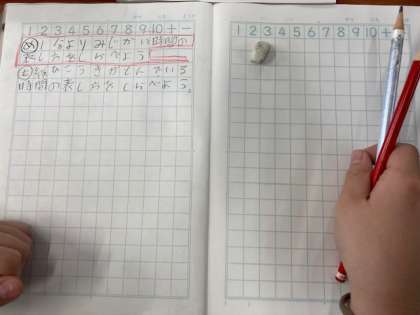 1 2 3 4 5 6 7 8 9 10 + −
め 1分よりみじかい時間の
表し方をしらべよう
時間の表し方をしらべよう。
1 2 3 4 5 6 7 8 9 10 +